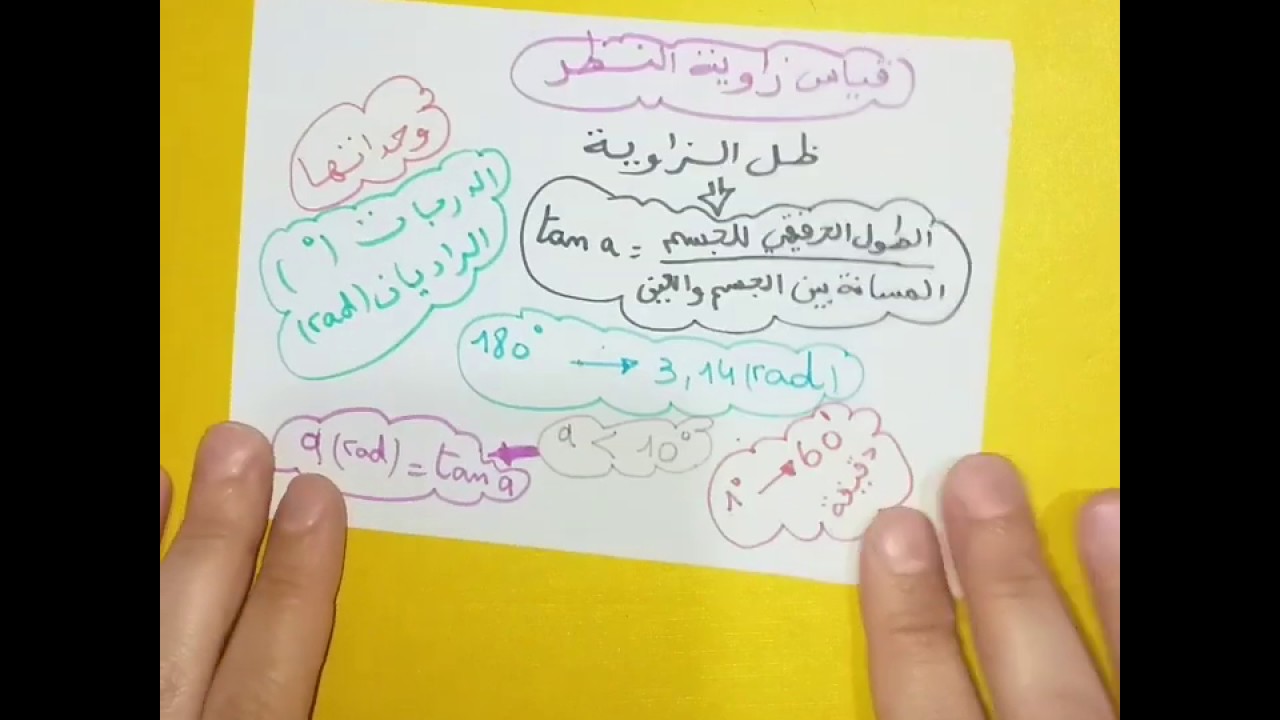 قياس زاوية النظر
وحداتها
الدرجات (°)
الراديان (rad)
ظل الزاوية
tan a = الطول الحقيقي للجسم
المسافة بين الجسم والعين
180° → 3,14 (rad)
a < 10°
a (rad) = tan a
1° → 60'
دقيقة